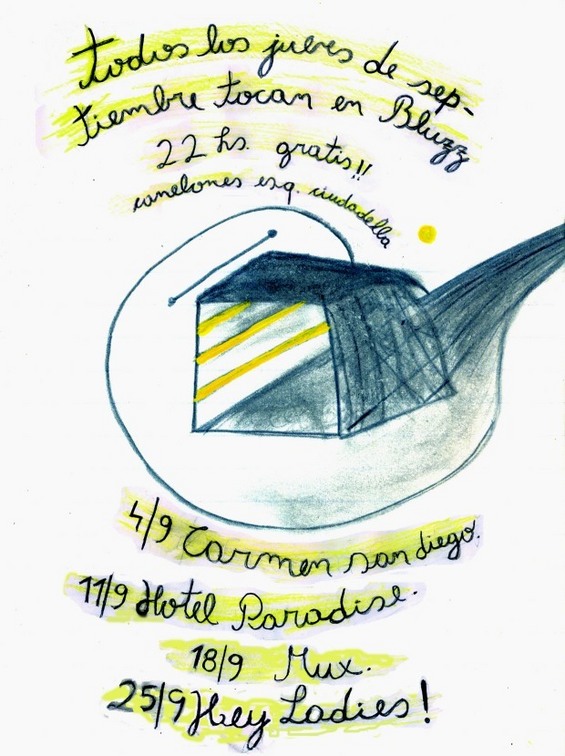 todos los jueves de sep-
tiembre tocan en Bluzz
22 hs. gratis!!
canelones esq. ciudadella
4/9 Carmen san diego.
11/9 Hotel Paradise.
18/9 Mux.
25/9 Hey Ladies!